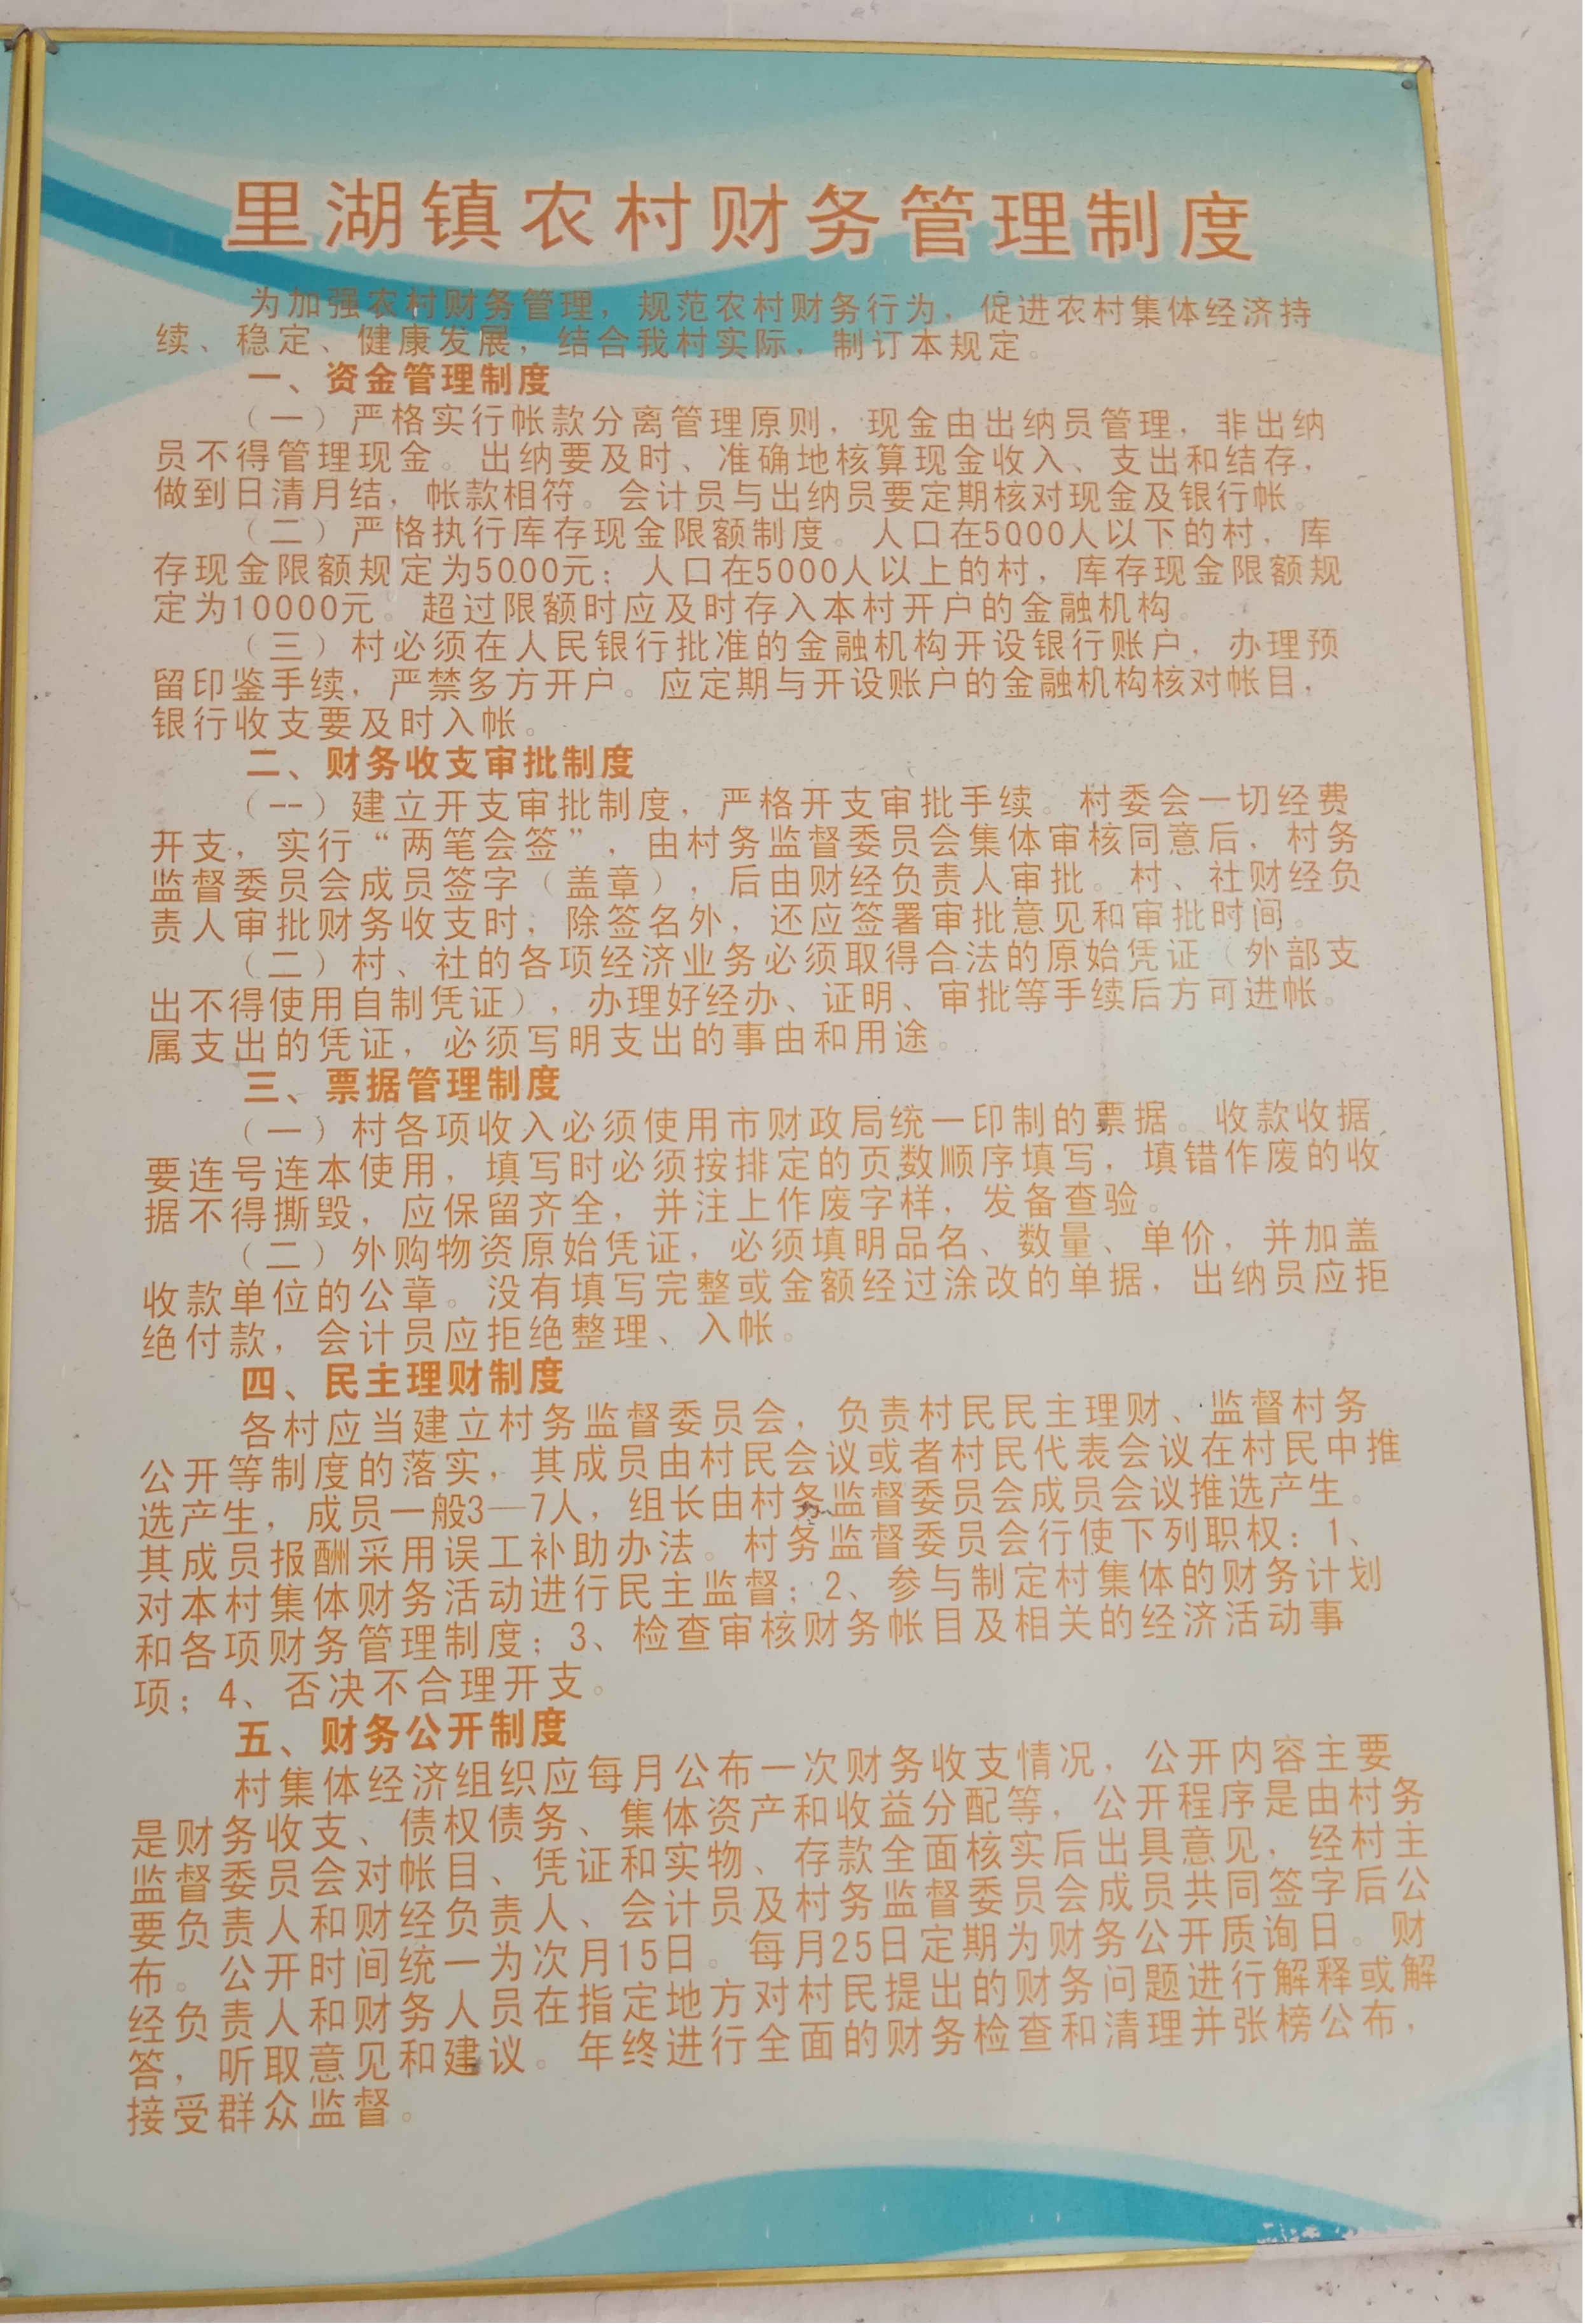 里湖镇农村财务管理制度
为加强农村财务管理，规范农村财务行为，促进农村集体经济持
续、稳定、健康发展，结合我村实际，制订本规定。
一、资金管理制度
（一）严格实行帐款分离管理原则，现金由出纳员管理，非出纳
员不得管理现金。出纳要及时、准确地核算现金收入、支出和结存，
做到日清月结，帐款相符。会计员与出纳员要定期核对现金及银行帐。
（二）严格执行库存现金限额制度。人口在5000人以下的村，库
存现金限额规定为5000元；人口在5000人以上的村，库存现金限额规
定为10000元。超过限额时应及时存入本村开户的金融机构。
（三）村必须在人民银行批准的金融机构开设银行账户，办理预
留印鉴手续，严禁多方开户。应定期与开设账户的金融机构核对帐目，
银行收支要及时入帐。
二、财务收支审批制度
（一）建立开支审批制度，严格开支审批手续。村委会一切经费
开支，实行“两笔会签”，由村务监督委员会集体审核同意后，村务
监督委员会成员签字（盖章），后由财经负责人审批。村、社财经负
责人审批财务收支时，除签名外，还应签署审批意见和审批时间。
（二）村、社的各项经济业务必须取得合法的原始凭证（外部支
出不得使用自制凭证），办理好经办、证明、审批等手续后方可进帐。
属支出的凭证，必须写明支出的事由和用途。
三、票据管理制度
（一）村各项收入必须使用市财政局统一印制的票据。收款收据
要连号连本使用，填写时必须按排定的页数顺序填写，填错作废的收
据不得撕毁，应保留齐全，并注上作废字样，发备查验。
（二）外购物资原始凭证，必须填明品名、数量、单价，并加盖
收款单位的公章。没有填写完整或金额经过涂改的单据，出纳员应拒
绝付款，会计员应拒绝整理、入帐。
四、民主理财制度
各村应当建立村务监督委员会，负责村民民主理财、监督村务
公开等制度的落实，其成员由村民会议或者村民代表会议在村民中推
选产生，成员一般3—7人，组长由村务监督委员会成员会议推选产生。
其成员报酬采用误工补助办法。村务监督委员会行使下列职权：1、
对本村集体财务活动进行民主监督；2、参与制定村集体的财务计划
和各项财务管理制度；3、检查审核财务帐目及相关的经济活动事
项；4、否决不合理开支。
五、财务公开制度
村集体经济组织应每月公布一次财务收支情况，公开内容主要
是财务收支、债权债务、集体资产和收益分配等，公开程序是由村务
监督委员会对帐目、凭证和实物、存款全面核实后出具意见，经村主
要负责人和财经负责人、会计员及村务监督委员会成员共同签字后公
布。公开时间统一为次月15日。每月25日定期为财务公开质询日。财
经负责人和财务人员在指定地方对村民提出的财务问题进行解释或解
答，听取意见和建议。年终进行全面的财务检查和清理并张榜公布，
接受群众监督。